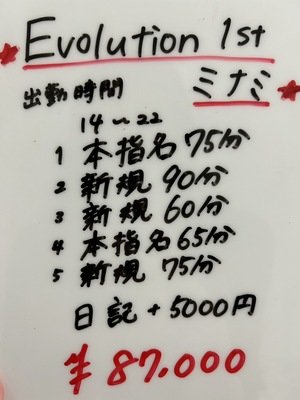 Evolution 1st
ミナミ
出勤時間
14〜22
1 本指名75分
2 新規 90分
3 新規 60分
4 本指名65分
5 新規 75分
日記+5000円
¥87,000